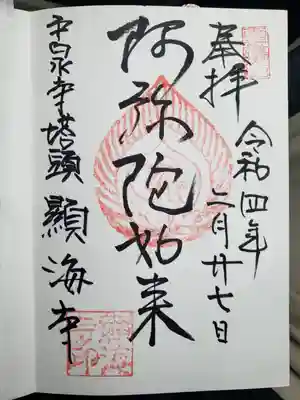 奉拝
令和四年二月廿七日
阿弥陀如来
平泉寺塔頭 顯海寺